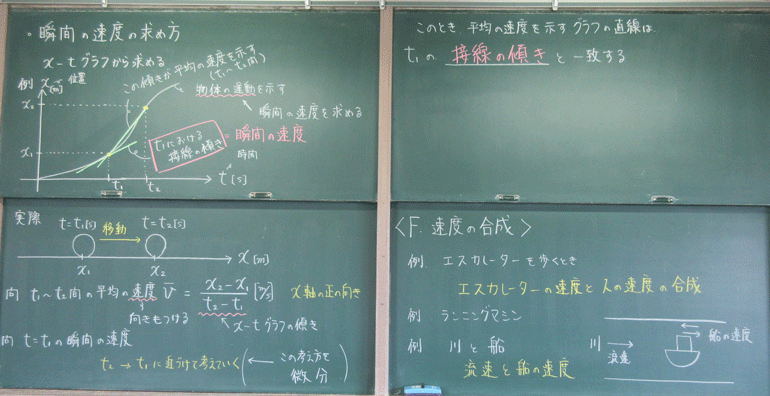 ・瞬間の速度の求め方
x-tグラフから求める
例 x[m] 位置
この傾きが平均の速度を示す
(t₁~t₂間)
物体の運動を示す
瞬間の速度を求める
x₂
x₁
t₁における
接線の傾き
= 瞬間の速度
時間
t₁ t₂ t[s]
このとき、平均の速度を示すグラフの直線は
t₁の 接線の傾き と一致する
実際
t=t₁[s] 移動 t=t₂[s]
x₁ x₂ x[m]
問 t₁~t₂間の平均の速度 v̄ = (x₂-x₁)/(t₂-t₁) [m/s] x軸の正の向き
向きもつける
x-tグラフの傾き
問 t=t₁の瞬間の速度
t₂→t₁に近づけて考えていく (← この考え方を 微分)
<F. 速度の合成>
例. エスカレーターを歩くとき
エスカレーターの速度と人の速度の合成
例 ランニングマシン
例 川と船
流速と船の速度
川
流速
船の速度